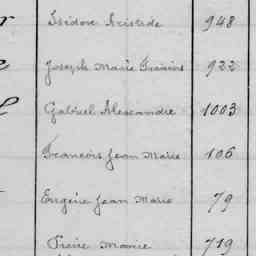 Isidore Aristide 948
Joseph Marie 922
Gabriel Alexandre 1003
François Jean Marie 106
Eugène Jean Marie 79
Pierre Marie 719